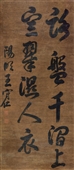 路盤千磵上
空翠濕人衣
陽明王守仁